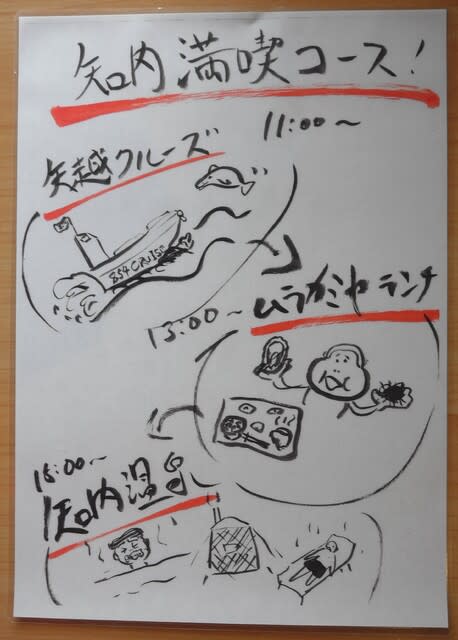 知内満喫コース!
11:00~
矢越クルーズ
854 CRUISE
13:00~
ムラカミヤランチ
15:00~
知内温泉